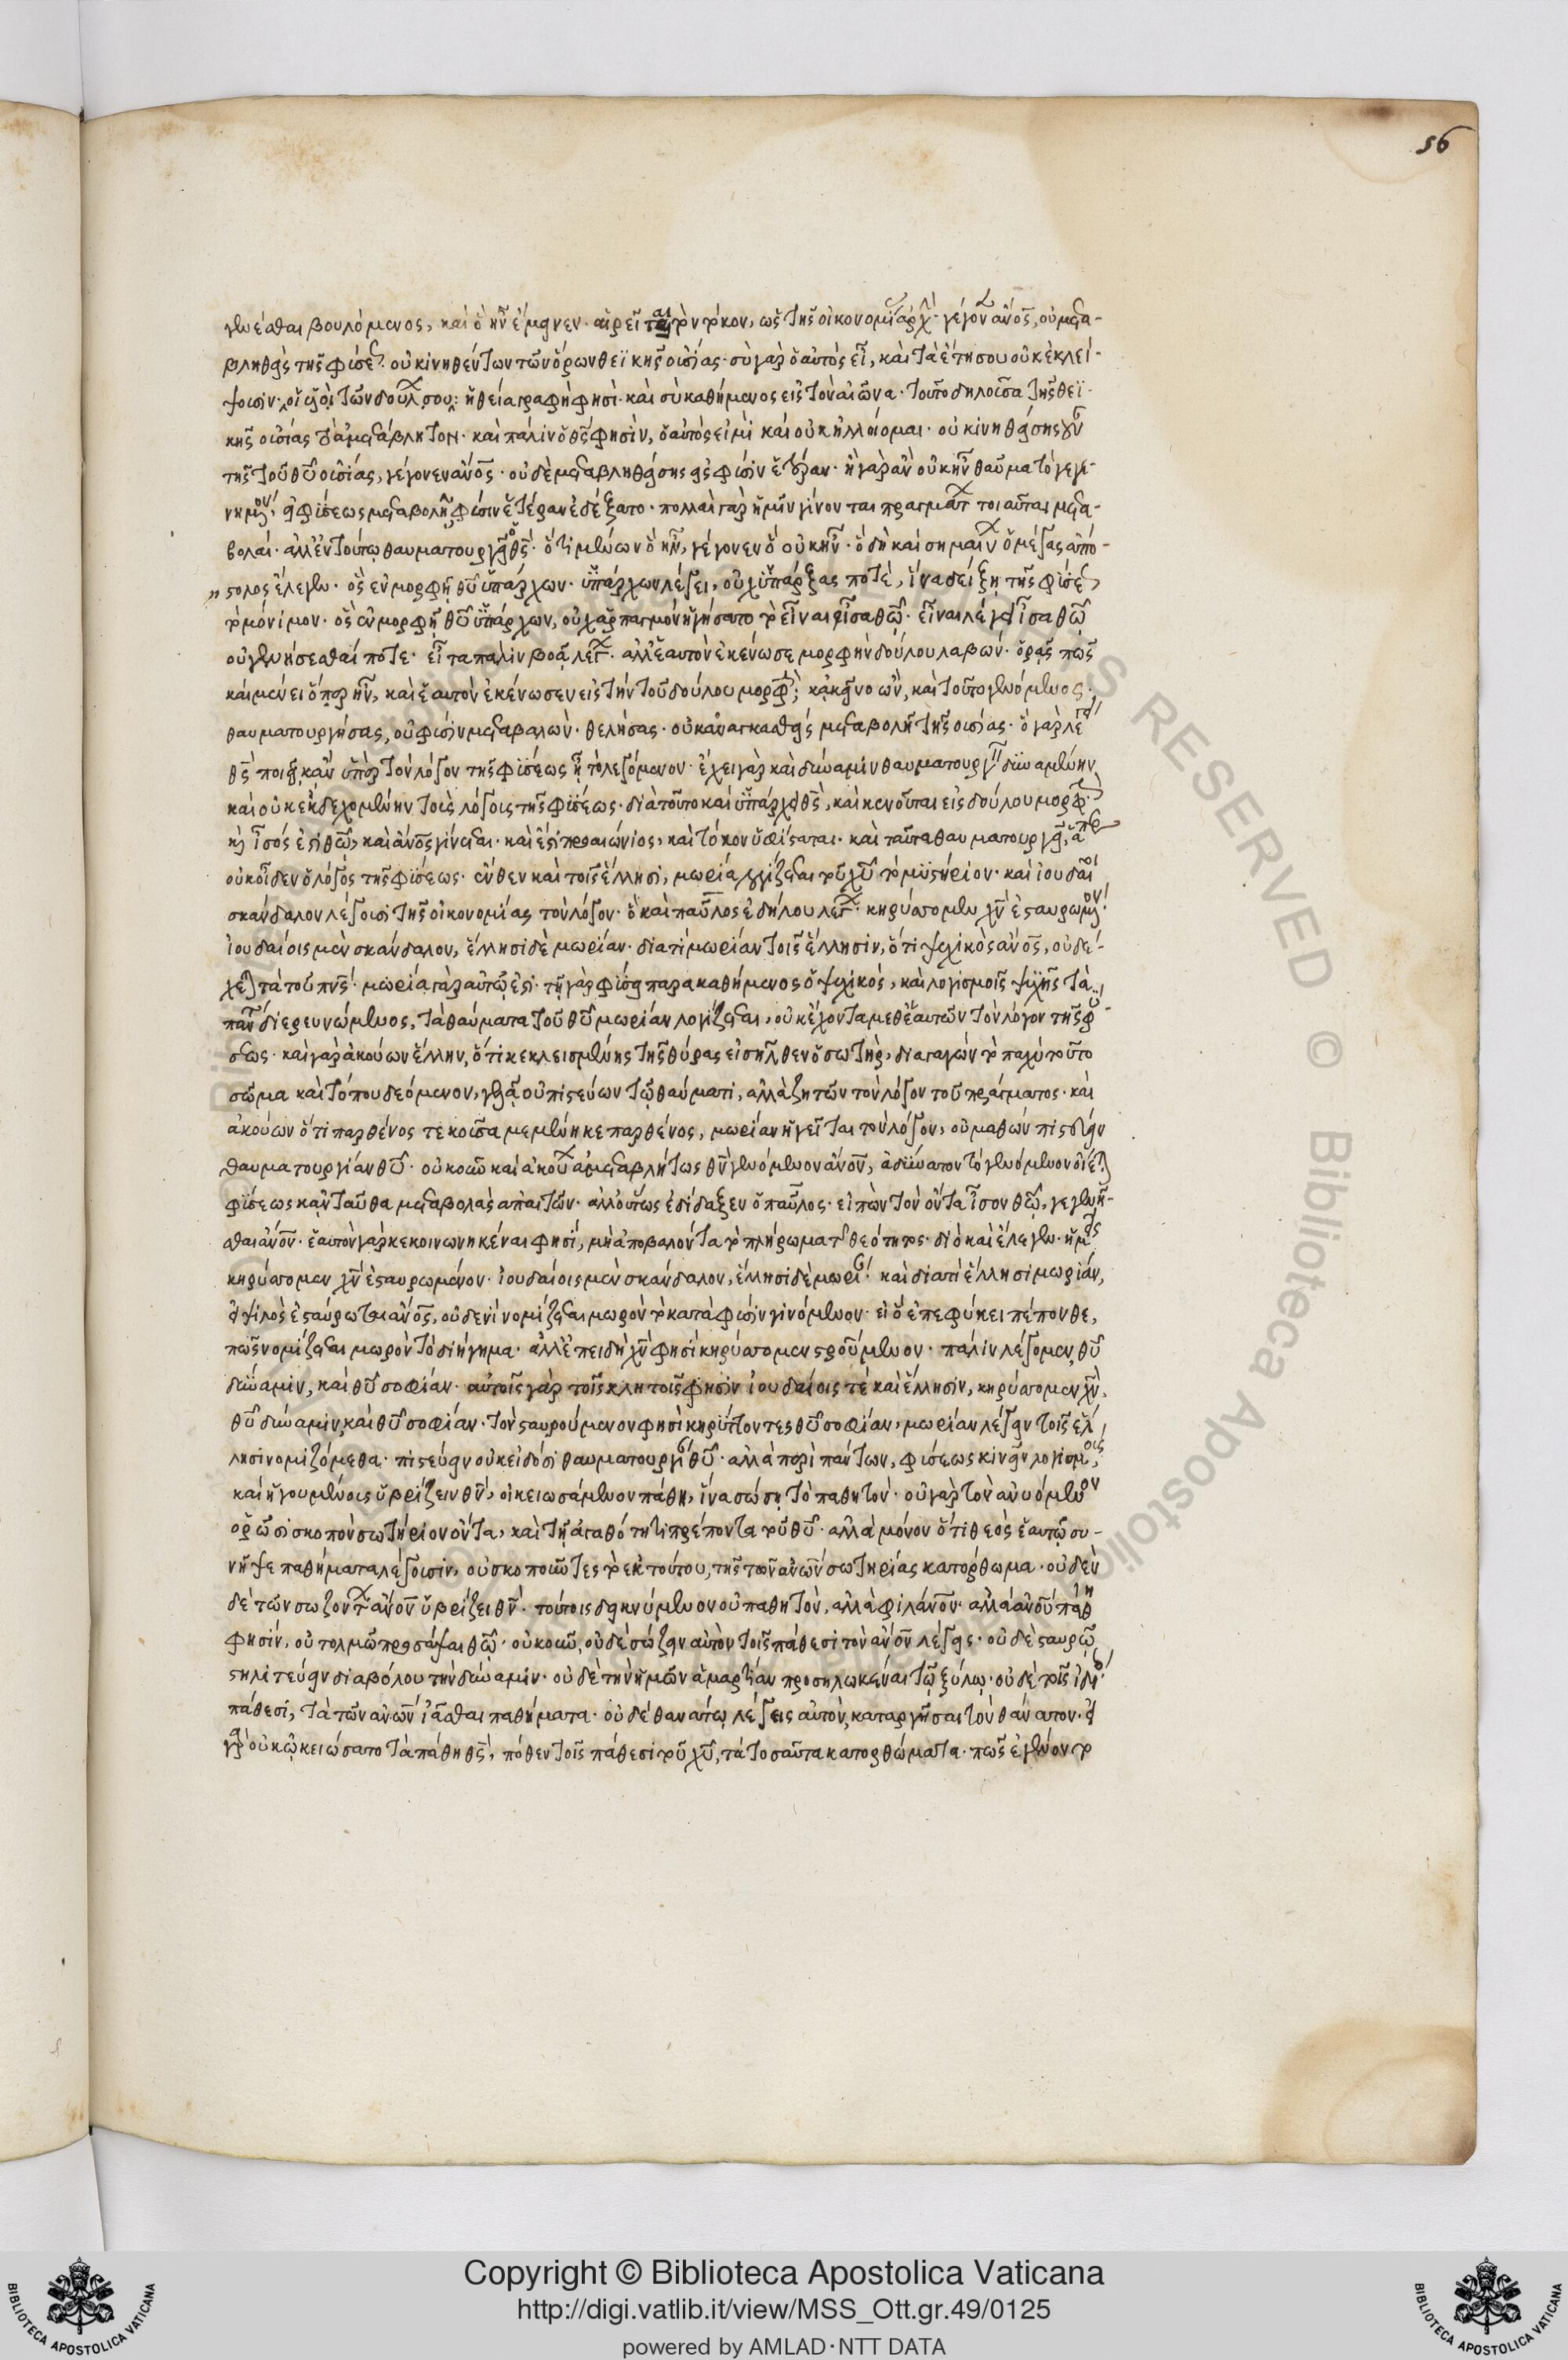 56
γενέσθαι βουλόμενος, καὶ ὃ ἦν ἔμεινεν· αἱρεῖται τὸν τόκον, ὡς τῆς οἰκονομίας ἀρχὴν· γέγονεν ἄνος, οὐ μετα-
βληθεὶς τῆς φύσεως· οὐ κινηθέντων τῶν ὅρων θεϊκῆς οὐσίας· σὺ γὰρ ὁ αὐτὸς εἶ, καὶ τὰ ἔτη σου οὐκ ἐκλεί-
ψουσιν· οἱ υἱοὶ τῶν δούλων σου: ἡ θεία γραφή φησι· καὶ σὺ καθήμενος εἰς τὸν αἰῶνα· τοῦτο δηλοῦσα τῆς θεϊ-
κῆς οὐσίας τὸ ἀμετάβλητον· καὶ πάλιν ὁ θς φησὶν, ὁ αὐτός εἰμι καὶ οὐκ ἠλλοίομαι· οὐ κινηθείσης οὖν
τῆς τοῦ θυ οὐσίας, γέγονεν ἄνος· οὐδὲ μεταβληθείσης εἰς φύσιν ἑτέραν· ἢ γὰρ ἂν οὐκ ἦν θαῦμα τὸ γεγε-
νημένον, εἰ φύσεως μεταβολὴ φύσιν ἑτέραν ἐδέξατο· πολλαὶ γὰρ ἡμῖν γίνονται πραγμάτων τοιαῦται μετα-
βολαί· ἀλλ' ἐν τούτῳ θαυματουργεῖ ὁ θς· ὅτι μένων ὃ ἦν, γέγονεν ὃ οὐκ ἦν· ὃ δὴ καὶ σημαίνων ὁ μέγας ἀπό-
" στολος ἔλεγεν· ὃς ἐν μορφῇ θυ ὑπάρχων· ὑπάρχων λέγει, οὐχ ὑπάρξας ποτέ, ἵνα δείξῃ τῆς φύσεως
τὸ μόνιμον· ὃς ἐν μορφῇ θυ ὑπάρχων, οὐχ ἁρπαγμὸν ἡγήσατο τὸ εἶναι ἶσα θῶ· εἶναι λέγει ἶσα θῶ
οὐ γενήσεσθαί ποτε· εἶτα πάλιν βοᾷ λέγων· ἀλλ' ἑαυτὸν ἐκένωσε μορφὴν δούλου λαβών· ὁρᾷς πῶς
καὶ μένει ὅπερ ἦν, καὶ ἑαυτὸν ἐκένωσεν εἰς τὴν τοῦ δούλου μορφήν; κἀκεῖνο ὢν, καὶ τοῦτο γενόμενος·
θαυματουργήσας, οὐ φύσιν μεταβαλών· θελήσας· οὐκ ἀναγκασθεὶς μεταβολῇ τῆς οὐσίας· ὃ γὰρ λέγει
θς ποιεῖ κἂν ὑπὲρ τὸν λόγον τῆς φύσεως ᾖ τὸ λεγόμενον· ἔχει γὰρ καὶ δύναμιν θαυματουργεῖν δυναμένην
καὶ οὐκ ἐκδεχομένην τοὺς λόγοις τῆς φύσεως· διὰ τοῦτο καὶ ὑπάρχει θς, καὶ κενοῦται εἰς δούλου μορφήν·
καὶ ἶσός ἐστι θῶ, καὶ ἄνος γίνεται· καὶ ἔστι προαιώνιος, καὶ τόκον ὑφίσταται· καὶ ταῦτα θαυματουργεῖ, ἅπερ
οὐκ οἶδεν ὁ λόγος τῆς φύσεως· ἔνθεν καὶ τοῖς ἕλλησι, μωρία λογίζεται τοῦ χυ τὸ μυστήριον· καὶ ἰουδαῖοι
σκάνδαλον λέγουσι τῆς οἰκονομίας τὸν λόγον· ὃ καὶ παῦλος ἐδήλου λέγων· κηρύσσομεν χν ἐσταυρωμένον·
ἰουδαίοις μὲν σκάνδαλον, ἕλλησι δὲ μωρίαν· διατί μωρίαν τοῖς ἕλλησιν, ὅτι ψυχικὸς ἄνος, οὐ δέ-
χεται τὰ τοῦ πνς· μωρία γὰρ αὐτῷ ἐστί· τῇ γὰρ φύσει παρακαθήμενος ὁ ψυχικός, καὶ λογισμοῖς ψυχῆς τὰ
πάντα διερευνώμενος, τὰ θαύματα τοῦ θυ μωρίαν λογίζεται, οὐκ ἔχοντα μεθ' ἑαυτῶν τὸν λόγον τῆς φύ-
σεως· καὶ γὰρ ἀκούων ἕλλην, ὅτι κεκλεισμένης τῆς θύρας εἰσῆλθεν ὁ σωτήρ, διαγαγὼν τὸ παχὺ τοῦτο
σῶμα καὶ τόπου δεόμενον, γελᾷ οὐ πιστεύων τῷ θαύματι, ἀλλὰ ζητῶν τὸν λόγον τοῦ πράγματος· καὶ
ἀκούων ὅτι παρθένος τεκοῦσα μεμένηκε παρθένος, μωρίαν ἡγεῖται τὸν λόγον, οὐ μαθὼν πιστεύειν
θαυματουργίαν θυ· οὐκοῦν καὶ ἀκούων ἀμεταβλήτως θν γενόμενον ἄνον, ἀδύνατον τὸ γενόμενον οἴεται
φύσεως κἀνταῦθα μεταβολὰς ἀπαιτῶν· ἀλλ' οὕτως ἐδίδαξεν ὁ παῦλος· εἰπὼν τὸν ὄντα ἶσον θῶ, γεγενῆ-
σθαι ἄνον· ἑαυτὸν γὰρ κεκοινωνηκέναι φησί, μὴ ἀποβαλόντα τὸ πλήρωμα τῆς θεότητος· διὸ καὶ ἔλεγεν· ἡμεῖς
κηρύσσομεν χν ἐσταυρωμένον· ἰουδαίοις μὲν σκάνδαλον, ἕλλησι δὲ μωρίαν· καὶ διατί ἕλλησι μωρίαν,
εἰ ψιλὸς ἐσταύρωται ἄνος, οὐδενὶ νομίζεται μωρὸν τὸ κατὰ φύσιν γινόμενον· εἰ ὃ ἐπεφύκει πέπονθε,
πῶς νομίζεται μωρὸν τὸ διήγημα· ἀλλ' ἐπειδὴ χν φησὶ κηρύσσομεν σταυρούμενον· πάλιν λέγομεν, θυ
δύναμιν, καὶ θυ σοφίαν· αὐτοῖς γὰρ τοῖς κλητοῖς φησὶν ἰουδαίοις τὲ καὶ ἕλλησιν, κηρύσσομεν χν,
θυ δύναμιν, καὶ θυ σοφίαν· τὸν σταυρούμενον φησὶ κηρύττοντες θυ σοφίαν, μωρίαν λέγειν τοῖς ἕλ-
λησι νομιζόμεθα· πιστεύειν οὐκ εἰδόσι θαυματουργίαν θυ· ἀλλὰ περὶ πάντων, φύσεως κινεῖν λογισμούς,
καὶ ἡγουμένοις ὑβρίζειν θν, οἰκειωσάμενον πάθη, ἵνα σώσῃ τὸ παθητόν· οὐ γὰρ τὸν ἀνυόμενον
ὁρῶσι σκοπὸν σωτήριον ὄντα, καὶ τῇ ἀγαθότητι πρέποντα τοῦ θυ· ἀλλὰ μόνον ὅτι θεὸς ἑαυτῷ συ-
νῆψε παθήματα λέγουσιν, οὐ σκοποῦντες τὸ ἐκ τούτου, τῆς τῶν ἀνων σωτηρίας κατόρθωμα· οὐδὲν
δὲ τῶν σωζόντων ἄνον ὑβρίζει θν· τούτοις δεικνύμενον οὐ παθητὸν, ἀλλὰ φιλάνον· ἀλλὰ ἀνου πάθη
φησίν, οὐ τολμῶ προσάψαι θῶ· οὐκοῦν, οὐδὲ σώζειν αὐτὸν τοῖς πάθεσι τὸν ἄνον λέγεις· οὐδὲ σταυρῷ
στηλιτεύειν διαβόλου τὴν δύναμιν· οὐδὲ τὴν ἡμῶν ἁμαρτίαν προσηλωκέναι τῷ ξύλῳ· οὐδὲ τοῖς ἰδίοις
πάθεσι, τὰ τῶν ἀνων ἰᾶσθαι παθήματα· οὐδὲ θανάτῳ λέγεις αὐτὸν, καταργῆσαι τὸν θάνατον· εἰ
γὰρ οὐκ ᾠκειώσατο τὰ πάθη θς, πόθεν τοῖς πάθεσι τοῦ χυ, τὰ τοσαῦτα κατορθώματα· πῶς ἐγένοντο
Copyright © Biblioteca Apostolica Vaticana
http://digi.vatlib.it/view/MSS_Ott.gr.49/0125
powered by AMLAD·NTT DATA